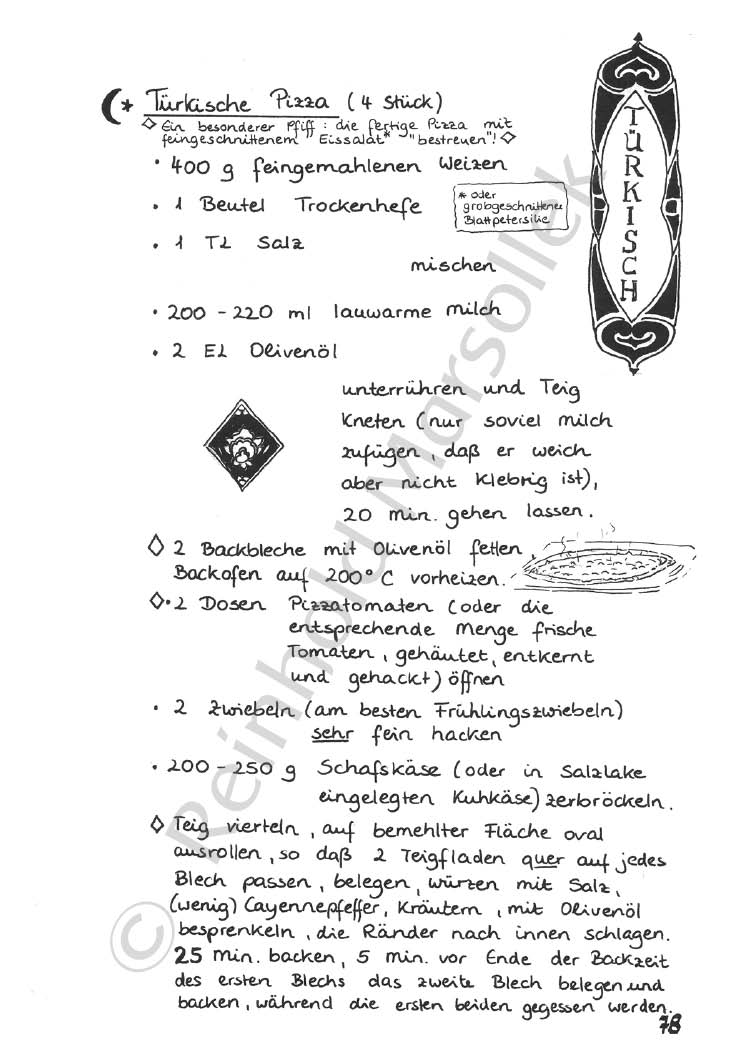 Türkische Pizza (4 Stück)
Ein besonderer Pfiff: die fertige Pizza mit
feingeschnittenem "Eissalat"* "bestreuen"!
· 400 g feingemahlenen Weizen
· 1 Beutel Trockenhefe
* oder
grobgeschnittener
Blattpetersilie
· 1 TL Salz
mischen
· 200 - 220 ml lauwarme Milch
· 2 EL Olivenöl
unterrühren und Teig
kneten (nur soviel Milch
zufügen, daß er weich
aber nicht klebrig ist),
20 Min. gehen lassen.
2 Backbleche mit Olivenöl fetten,
Backofen auf 200° C vorheizen.
· 2 Dosen Pizzatomaten (oder die
entsprechende Menge frische
Tomaten, gehäutet, entkernt
und gehackt) öffnen
· 2 Zwiebeln (am besten Frühlingszwiebeln)
sehr fein hacken
· 200 - 250 g Schafskäse (oder in Salzlake
eingelegten Kuhkäse) zerbröckeln.
Teig vierteln, auf bemehlter Fläche oval
ausrollen, so daß 2 Teigfladen quer auf jedes
Blech passen, belegen, würzen mit Salz,
(wenig) Cayennepfeffer, Kräutern, mit Olivenöl
besprenkeln, die Ränder nach innen schlagen.
25 Min. backen, 5 min. vor Ende der Backzeit
des ersten Blechs das zweite Blech belegen und
backen, während die ersten beiden gegessen werden.
78
TÜRKISCH
© Reinhold Marsollek